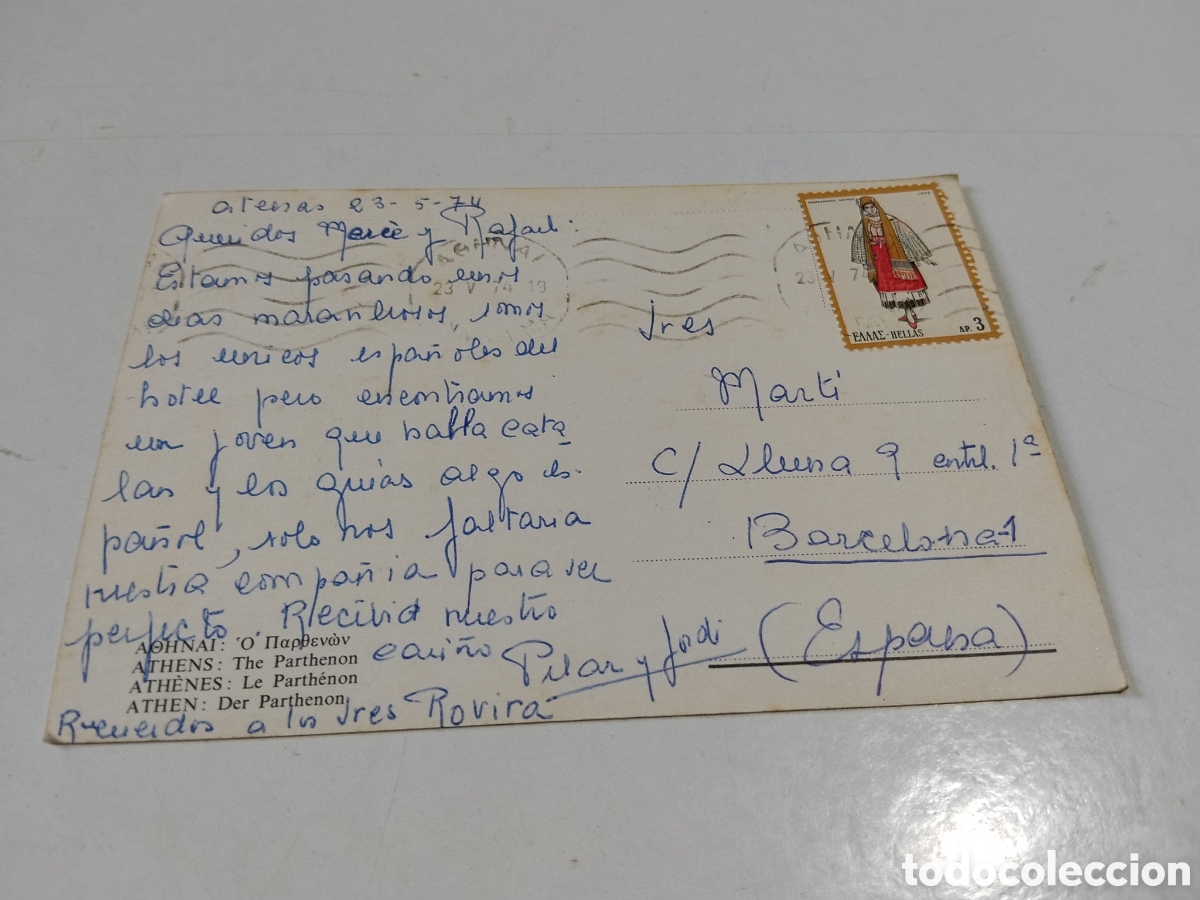 atenas 23-5-74
Queridos Mercè y Rafael:
Estamos pasando unos
dias maravillosos, somos
los unicos españoles del
hotel pero encontramos
un joven que habla cata
lan y los guias algo es-
pañol, solo nos faltaria
vuestra compañia para ser
perfecto Recibid nuestro
cariño Pilar y Jordi
Recuerdos a los Sres Rovira
ΑΘΗΝΑΙ: Ὁ Παρθενὼν
ATHENS: The Parthenon
ATHÈNES: Le Parthénon
ATHEN: Der Parthenon
ΑΘΗΝΑΙ
23 V 74 19
23 V 74
1972
ΕΛΛΑΣ-HELLAS ΔΡ. 3
Sres
Martí
C/ Lluna 9 entl. 1ª
Barcelona-1
(España)
todocoleccion